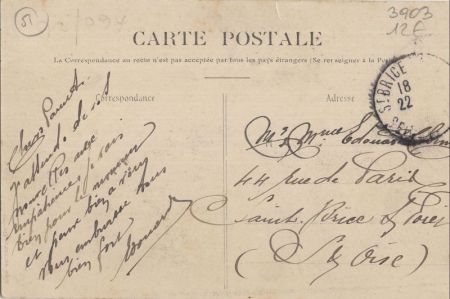 51
1094
3903
12 F
CARTE POSTALE
La Correspondance au recto n'est pas acceptée par tous les pays étrangers (Se renseigner à la Poste)
Correspondance
Adresse
ST BRICE
18
22
Chers Parents
J'attends de
nouvelles avec
impatience je suis
bien pour le moment
et pense bien à vous
Vous embrasse tous
bien fort
Edouard
Mr Mme Edouard
44 rue de Paris
Saint Brice s/ Forêt
(S et Oise)